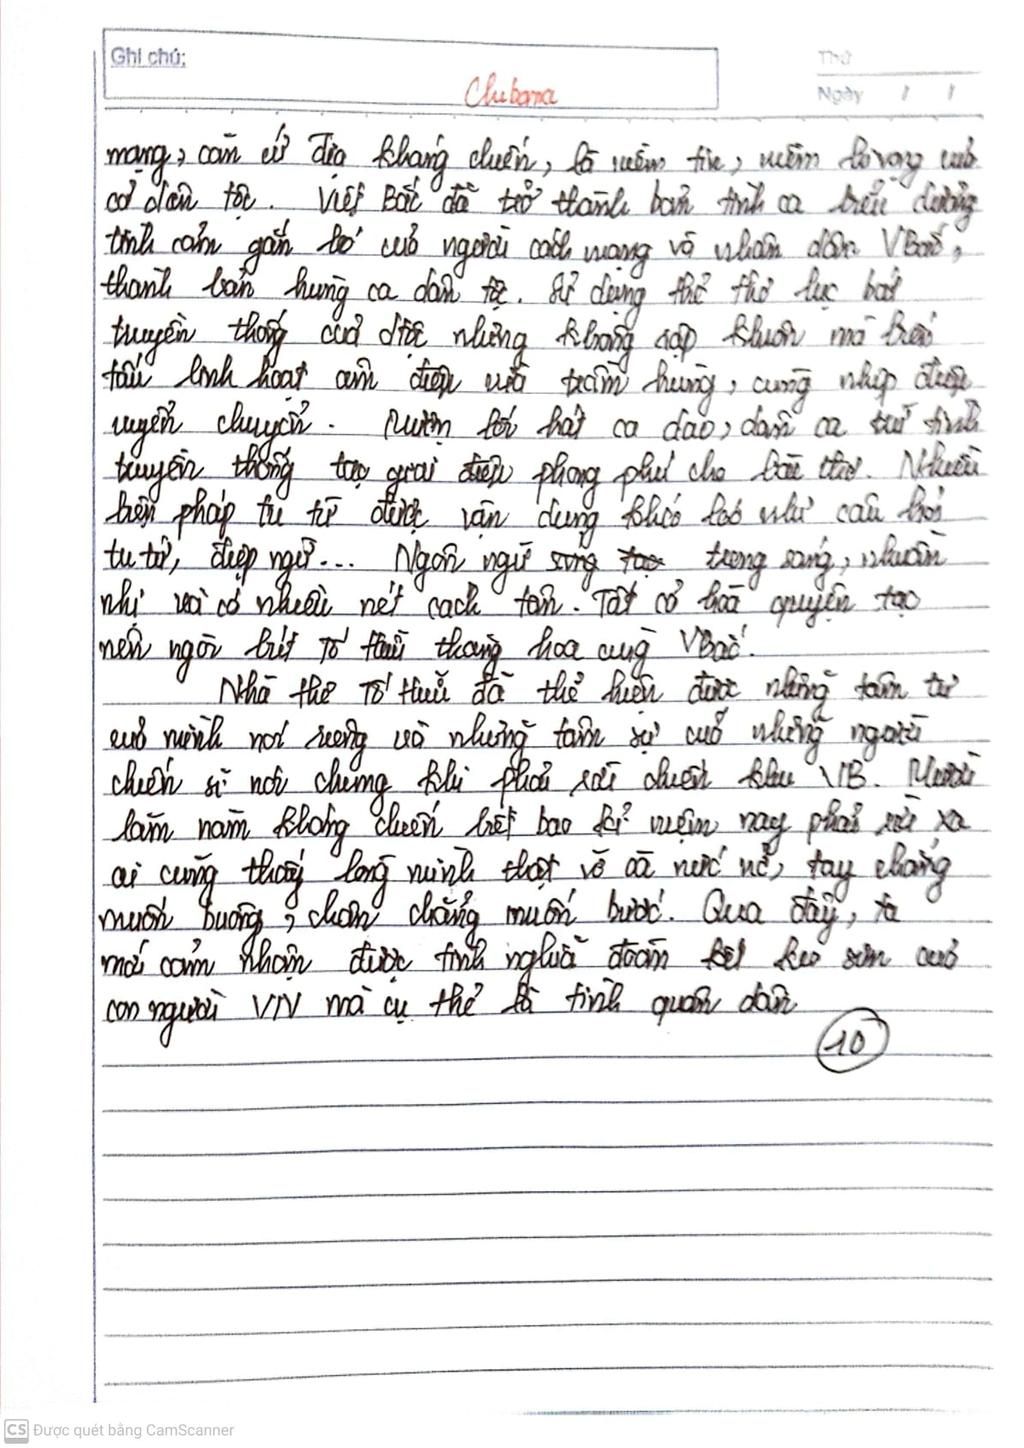 Ghi chú:
Thứ
Chubana
Ngày / /
mạng, căn cứ địa kháng chiến, là niềm tin, niềm hi vọng của
cả dân tộc. Việt Bắc đã trở thành bản tình ca biểu dương
tình cảm gắn bó của người cách mạng và nhân dân VBắc,
thành bản hùng ca dân tộc. Sử dụng thể thơ lục bát
truyền thống của dtộc nhưng không rập khuôn mà biến
tấu linh hoạt âm điệu vừa trầm hùng, cùng nhịp điệu
uyển chuyển. Mượn lối hát ca dao, dân ca trữ tình
truyền thống tạo giai điệu phong phú cho bài thơ. Nhiều
biện pháp tu từ được vận dụng khéo léo như câu hỏi
tu từ, điệp ngữ... Ngôn ngữ trong sáng, nhuần
nhị và có nhiều nét cách tân. Tất cả hoà quyện tạo
nên ngòi bút Tố Hữu thăng hoa cùng VBắc.
Nhà thơ Tố Hữu đã thể hiện được những tâm tư
của mình nói riêng và những tâm sự của những người
chiến sĩ nói chung khi phải rời chiến khu VB. Mười
lăm năm kháng chiến biết bao kỉ niệm nay phải rời xa
ai cũng thấy lòng mình thật vỡ oà nức nở, tay chẳng
muốn buông, chân chẳng muốn bước. Qua đây, ta
mới cảm nhận được tình nghĩa đoàn kết keo sơn của
con người VN mà cụ thể là tình quân dân
10
CS Được quét bằng CamScanner